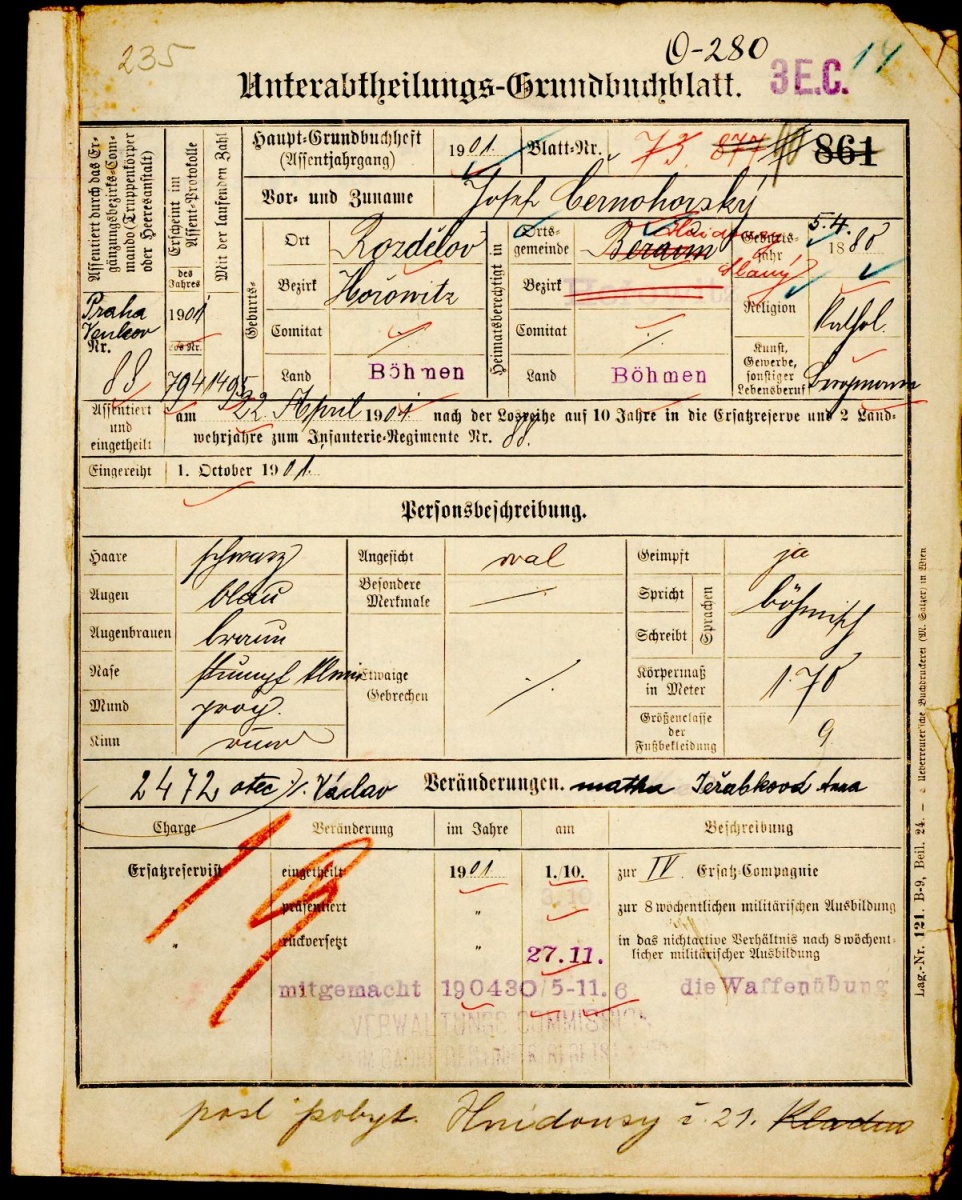 235
O-280
Unterabtheilungs-Grundbuchblatt. 3 E.C. 14
Assentiert durch das Ergänzungsbezirks-Commando (Truppenkörper oder Heeresanstalt)
Praha
Nr.
88
Erscheint im Assent-Protokolle
des Jahres
1901
Los Nr.
794
Mit der laufenden Zahl
1495
Haupt-Grundbuchheft
(Assentjahrgang)
1901. Blatt-Nr. 73. 877 861
Vor- und Zuname Josef Černohorský
Geburts-
Ort Rozdělov
Bezirk Hořowitz
Comitat ./.
Land Böhmen
Heimatsberechtigt in
Ortsgemeinde Beraun
Slaný
Bezirk Horowitz
Comitat ./.
Land Böhmen
Geburtsjahr 5.4. 1880
Religion kathol.
Kunst, Gewerbe, sonstiger Lebensberuf Bergmann
Assentiert und eingetheilt
am 22. April 1901 nach der Losreihe auf 10 Jahre in die Ersatzreserve und 2 Land-
wehrjahre zum Infanterie-Regimente Nr. 88.
Eingereiht 1. October 1901.
Personsbeschreibung.
Haare schwarz
Augen blau
Augenbrauen braun
Nase stumpf klein
Mund prop.
Kinn rund
Angesicht oval
Besondere Merkmale —
Etwaige Gebrechen ./.
Geimpft ja
Spricht
Schreibt
Sprachen
böhmisch
Körpermaß in Meter 1.70
Größenclasse der Fußbekleidung 9
2472 otec Václav Veränderungen. matka Jeřábková Anna
Charge Veränderung im Jahre am Beschreibung
Ersatzreservist eingetheilt 1901. 1./10. zur IV. Ersatz-Compagnie
präsentiert " 3.10 zur 8 wöchentlichen militärischen Ausbildung
" rückversetzt " 27.11. in das nichtactive Verhältnis nach 8 wöchent-
licher militärischer Ausbildung
mitgemacht 1904 30/5-11.6 die Waffenübung
VERWALTUNGS COMMISSION
posl pobyt. Hnidousy č. 21. Kladno
Lag.-Nr. 121. B-9, Beil. 24. — Ueberreuter'sche Buchdruckerei (M. Salzer) in Wien